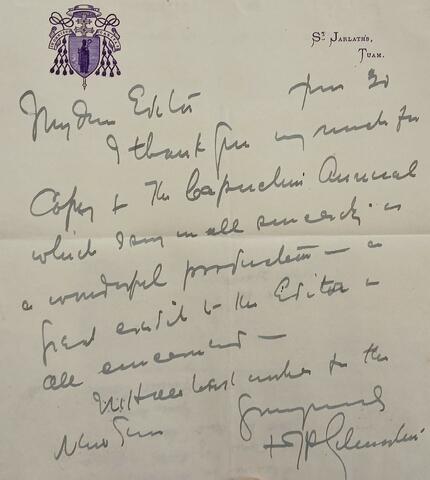 St. Jarlath's,
Tuam.
My dear Editor
I thank you very much for
Copy of The Capuchin Annual
which I say in all sincerity is
a wonderful production — a
great credit to the Editor &
all concerned —
With all best wishes for the
New Year